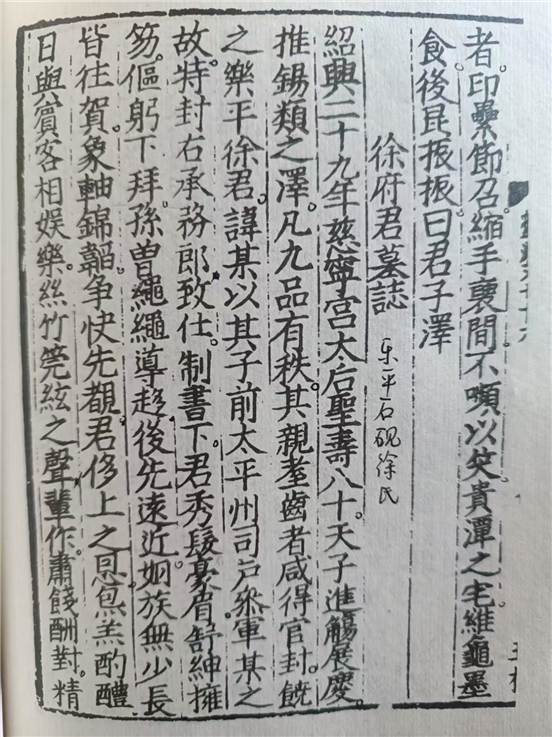 者。印纍節召。縮手褎間。不嚬以笑。貴潭之宅。維龜墨
食。後昆振振。曰君子澤
徐府君墓誌
乐平石砚徐氏
紹興二十九年。慈寧宫太后聖壽八十。天子進觴展慶。
推錫類之澤。凡九品有秩。其親耋齒者咸得官封。饒
之樂平徐君。諱某以其子前太平州司戶叅軍某之
故。特封右承務郎致仕。制書下。君秀髮豪眉。舒紳擁
笏。傴躬下拜。孫曾繩繩。導趍後先。遠近姻族無少長
皆往賀。象軸錦韜。争快先覩。君侈上之恩。炰羔酌醴
日與賓客相娛樂。絲竹筦絃之聲。輩作。肅餞酬對。精